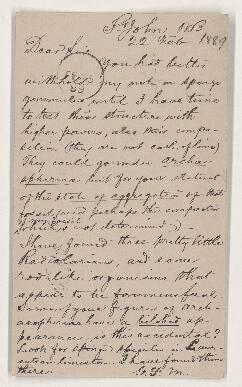 St John N.B.
22 Feb 1889
Dear Sir
You had better
withhold my note on sponge
gemmules until I have time
to test their structure with
higher powers, also their compo-
sition (they are not carb. of lime)
They could go under Archae-
ospherina but for your statement
of the state of aggregation of that
fossil, (and perhaps the composition
which is not determined) —
I have found three pretty little
Radiolarians, and some
rod like organisms that
appear to be foraminiferal
Some of your figures of arch-
aeospherina have a bilobed ap-
pearance is this accidental?
Look for sponge spicules in
limestone. I have found them
there. G. F. M.